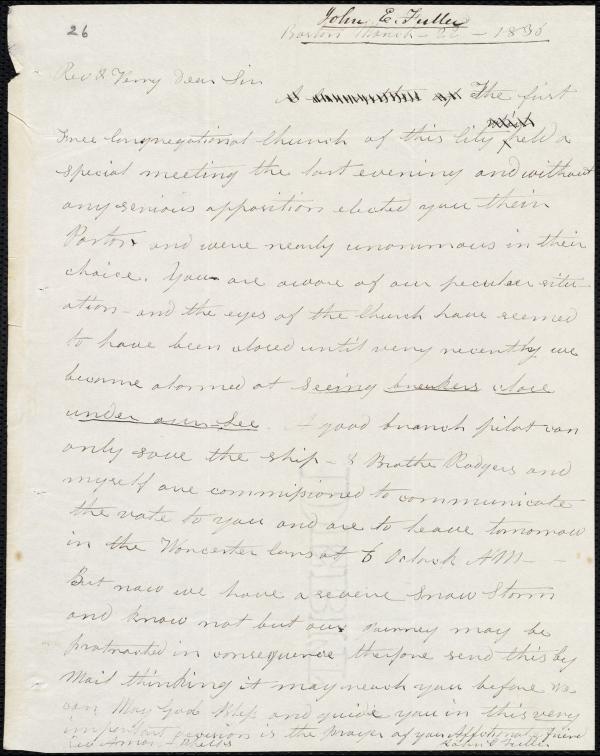 26
John E. Fuller
Boston March - 22 - 1836
Rev & Verry Dear Sir
The first
Free Congregational Church of this City held a
special meeting the last evening and without
any serious opposition elected you their
Pastor and were nearly unonimous in their
choice. You are aware of our peculiar situ-
ation - and the eyes of the Church have seemed
to have been closed until very recently, we
become alarmed at seeing breakers close
under our Lee. A good branch pilot can
only save the ship - & Brothe Rodgers and
myself are commissioned to communicate
the vote to you and are to leave tomorrow
in the Worcester cars at 6 Oclock AM -
But now we have a severe Snow Storm
and know not but our Journey may be
protracted in consequence therfore send this by
Mail thinking it may reach you before we
can May God bless and guide you in this very
important decision is the prayer of your Affectionate Friend
Rev Amos A Phelps John E Fuller